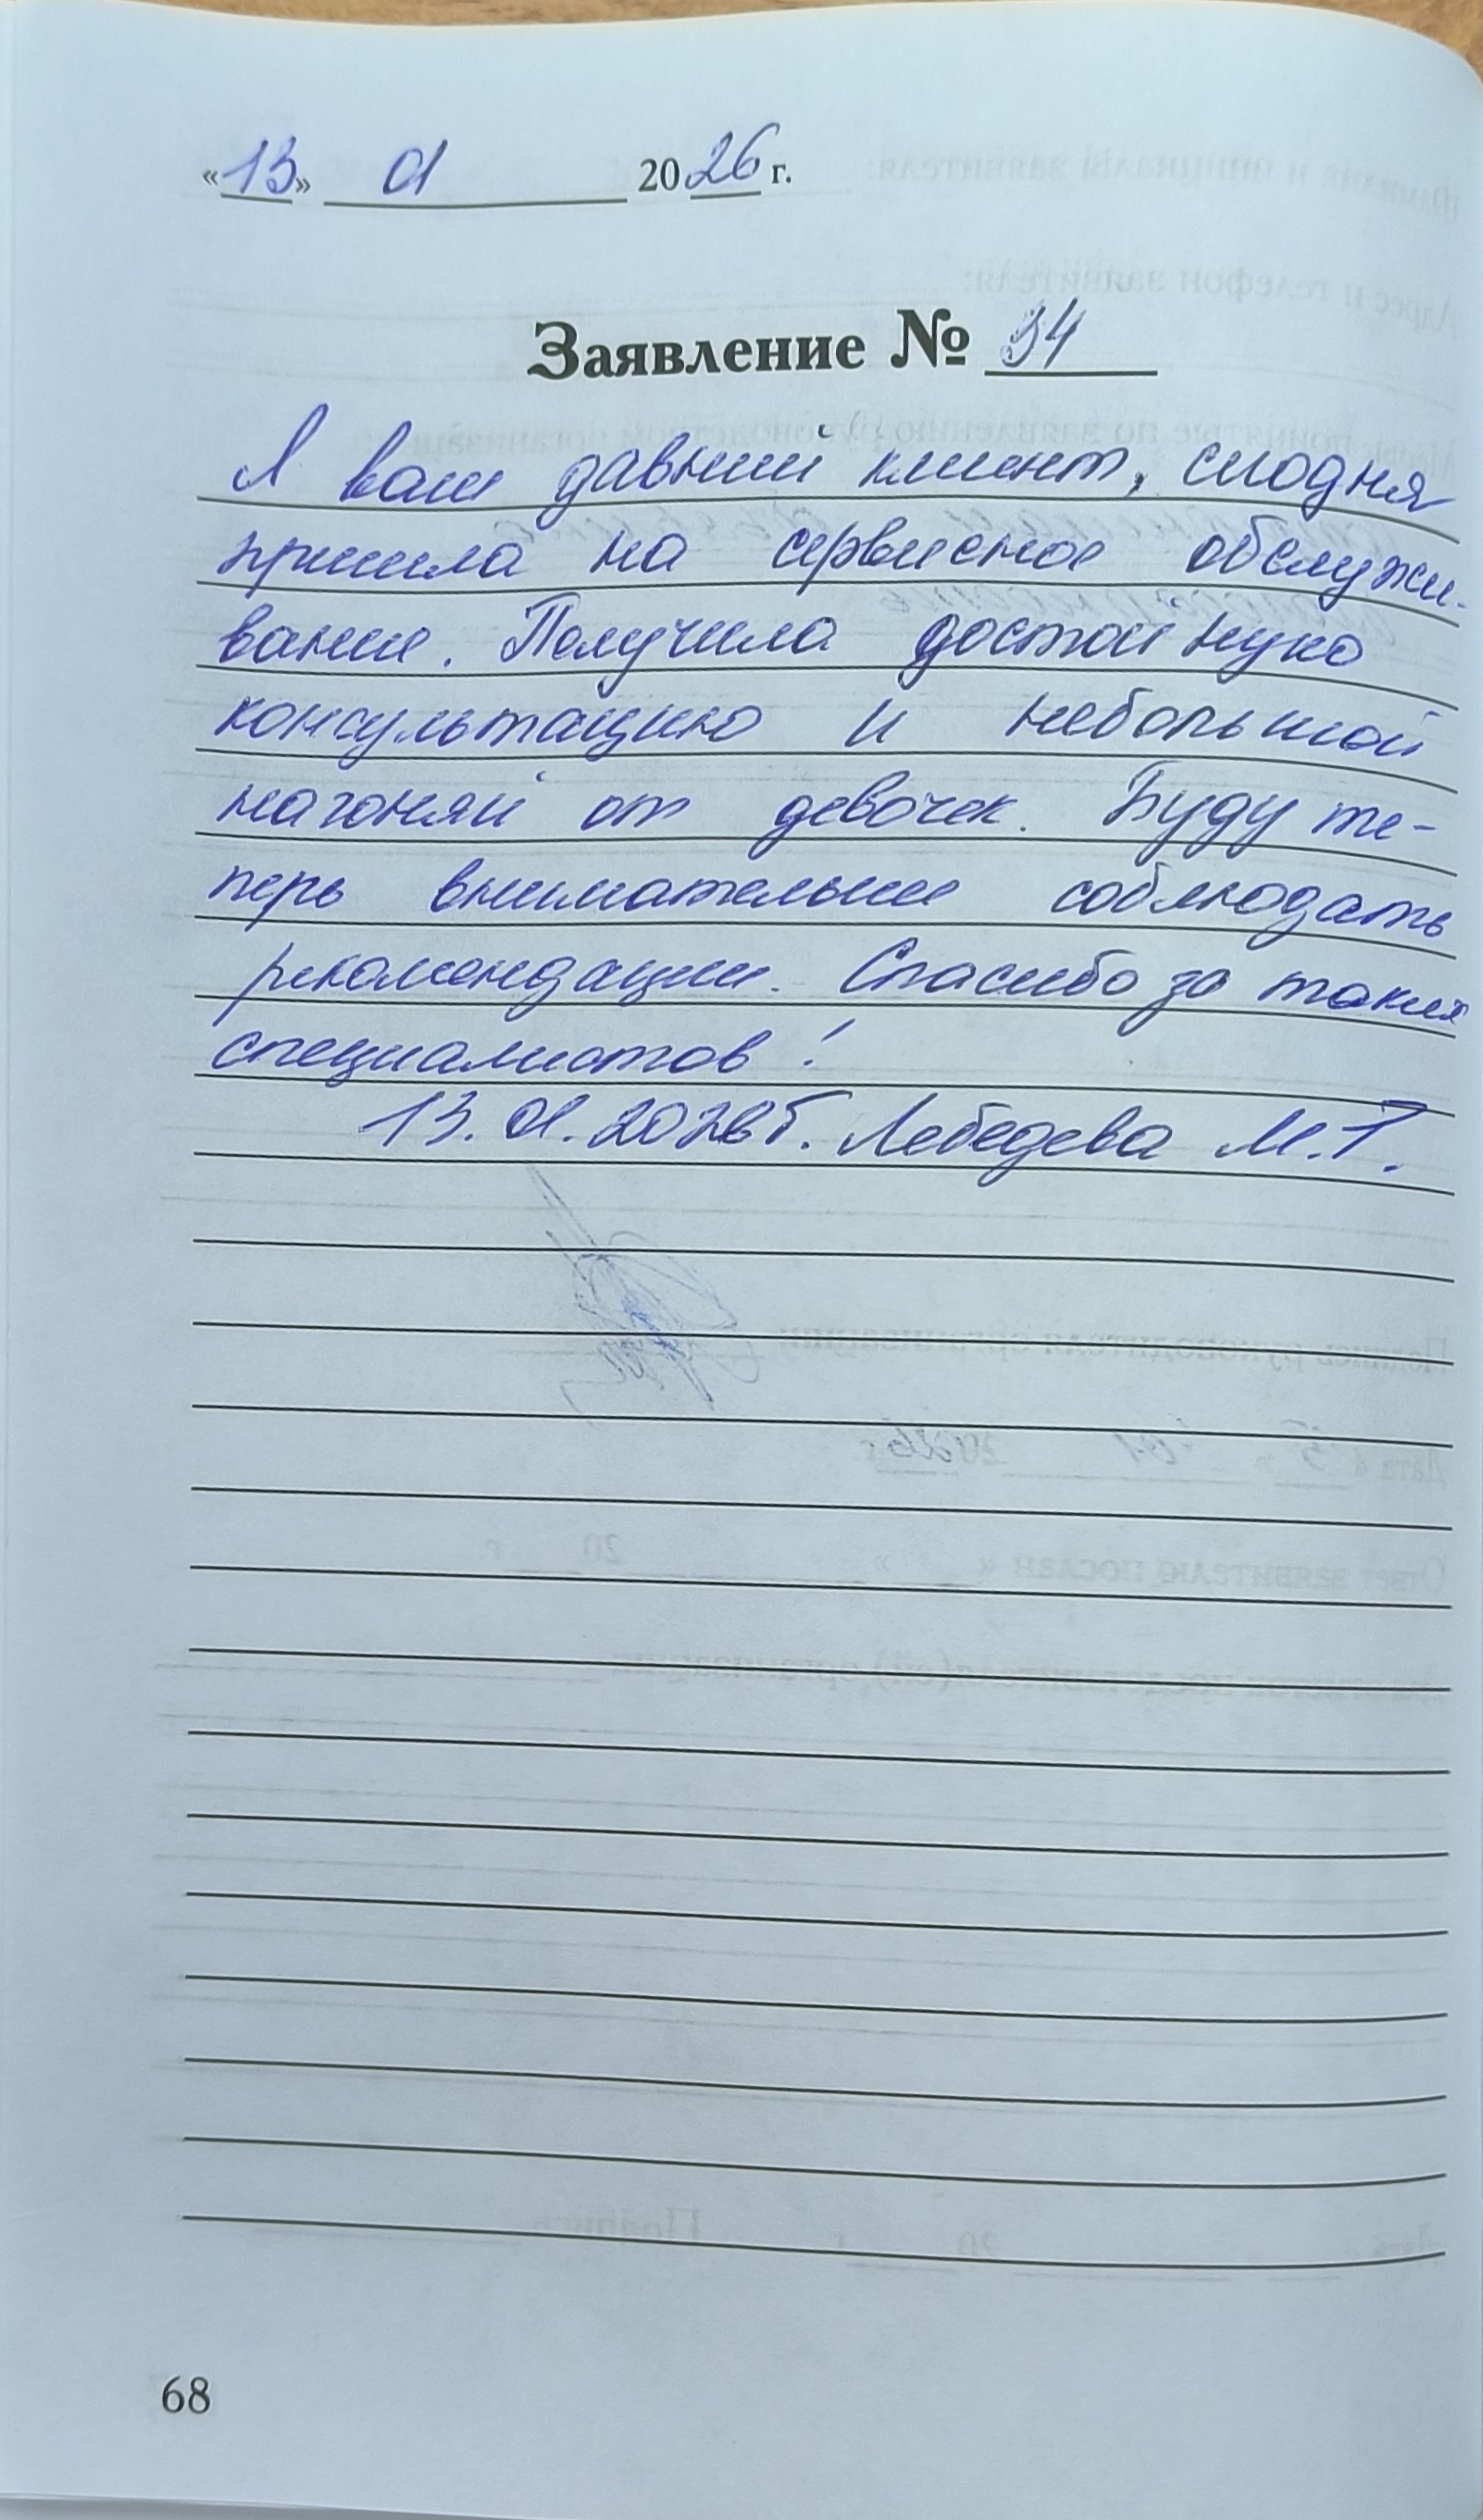 «13» 01 2026 г.
Заявление № 34
Я ваш давний клиент, сегодня
пришла на сервисное обслужи-
вание. Получила достойную
консультацию и небольшой
нагоняй от девочек. Буду те-
перь внимательнее соблюдать
рекомендации. Спасибо за таких
специалистов!
13.01.2026г. Лебедева М.Т.
68